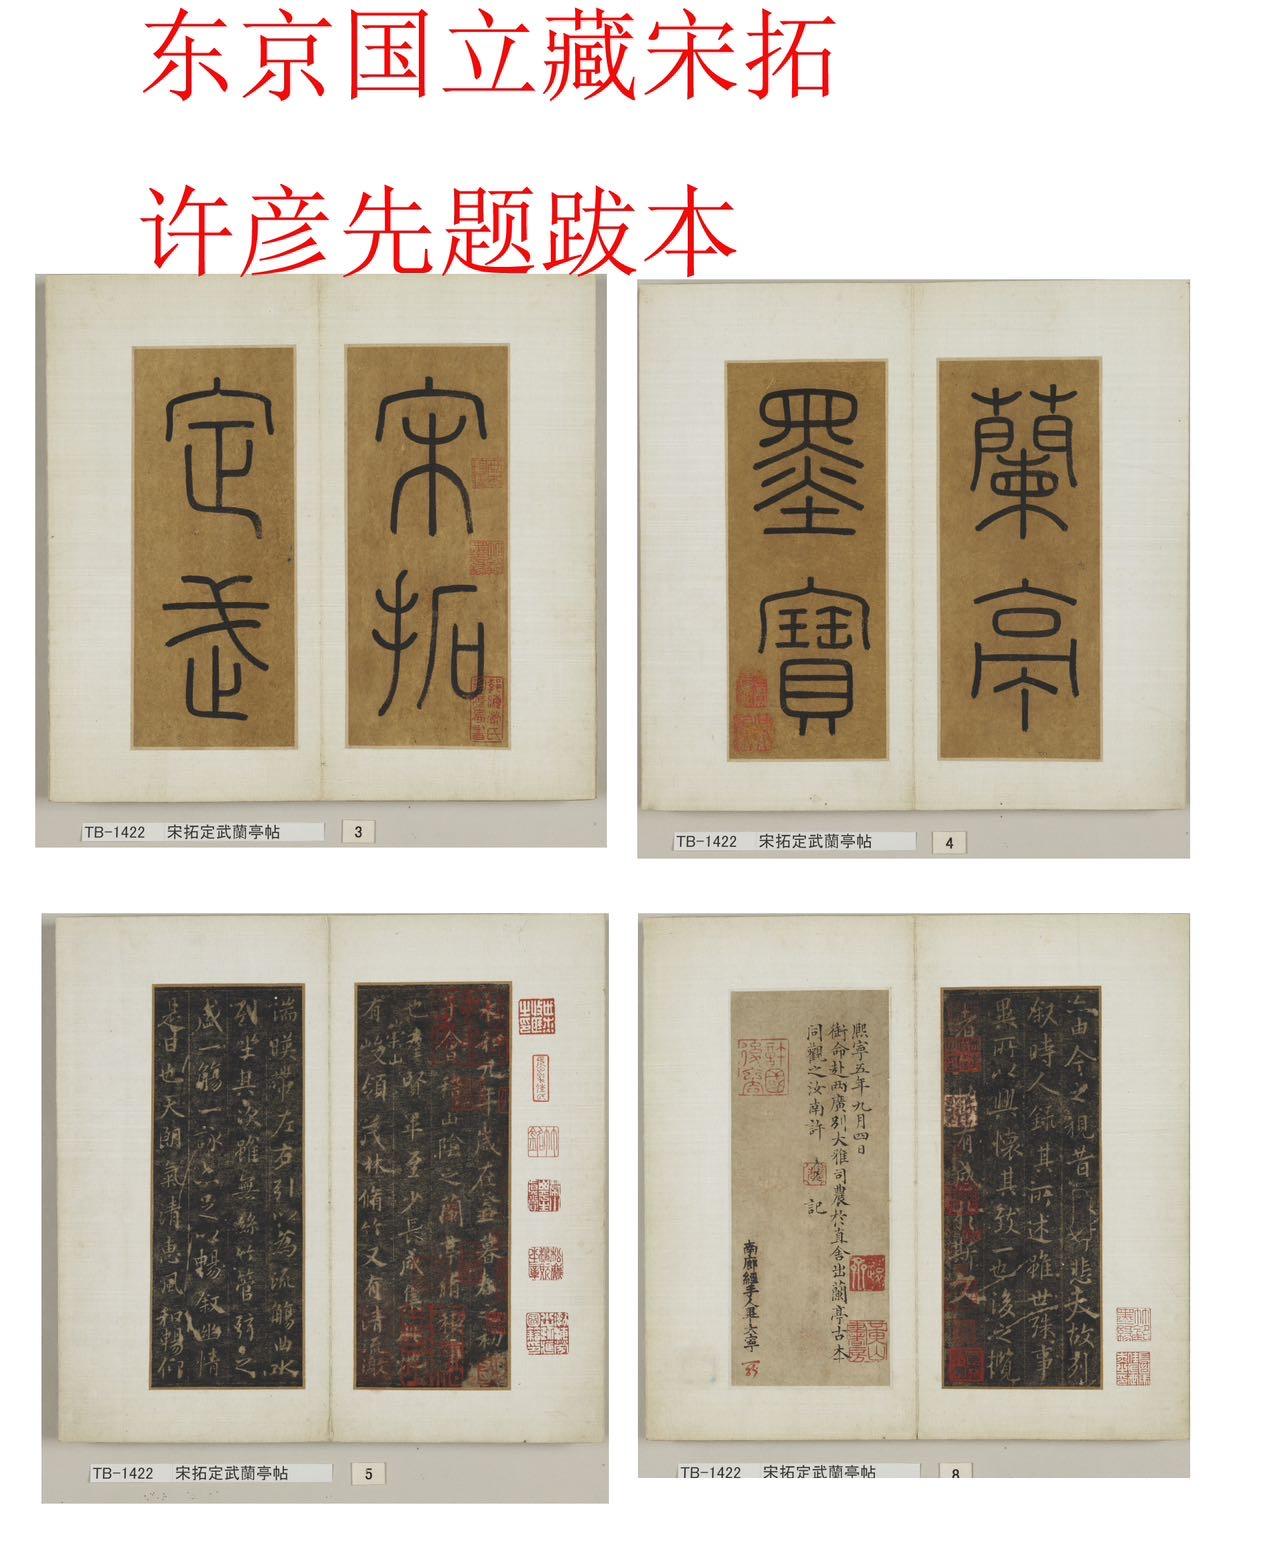 东京国立藏宋拓
许彦先题跋本
宋拓
定武
蘭亭
墨寶
TB-1422 宋拓定武蘭亭帖 3
TB-1422 宋拓定武蘭亭帖 4
永和九年歲在癸暮春之初
于會稽山陰之蘭亭脩禊
也羣賢畢至少長咸集此地
崇山
有峻領茂林脩竹又有清流激
湍暎帶左右引以為流觴曲水
列坐其次雖無絲竹管弦之
盛一觴一詠亦足以暢敘幽情
是日也天朗氣清惠風和暢仰
由今之視昔悲夫故列
敘時人錄其所述雖世殊事
異所以興懷其致一也後之攬
者有感於斯文
熙寧五年九月四日
銜命赴兩廣別大雅司農於直舍出蘭亭古本
同觀之汝南許
記
TB-1422 宋拓定武蘭亭帖 5
TB-1422 宋拓定武蘭亭帖 8